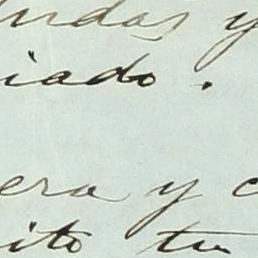 ndas y
iado.
era y c
ito tu